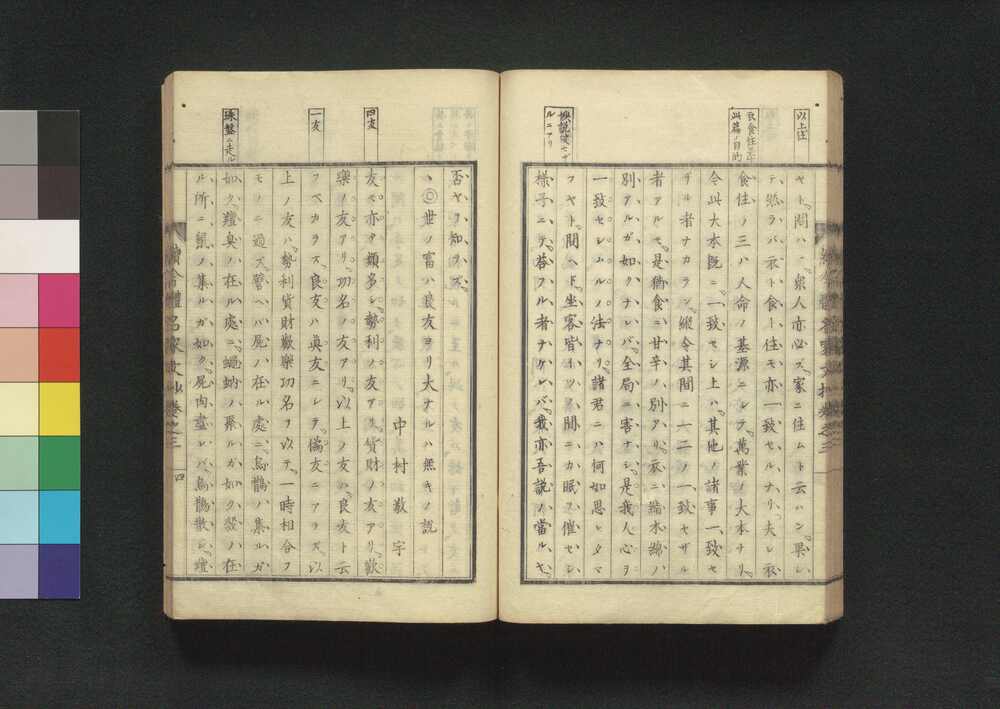 以上住
衣食住ノ三ハ
此篇ノ目的
ルニアリ
ヤト、問ハヾ、衆人亦必ズ家ニ住ムト云ハン、果シ
テ然ラバ、衣ト食ト住モ亦一致セルナリ、夫レ衣
食住ノ三ハ人命ノ基源ニシテ、萬業ノ大本ナリ、
今此大本既ニ一致セシ上ハ、其他ノ諸事一致セ
ザル者ナカラン、縱令其間ニ一二ノ一致セザル
者アルモ、是猶食ニ甘辛ノ別アリ、衣ニ絹木綿ノ
別アルガ如クナレバ、全局ニ害ナシ、是我人心ヲ
一致セシムルノ法ナリ、諸君ニハ何如思シタマ
フヤト、問ヘド、坐客皆イツノ間ニカ眠ヲ催セシ
樣子ニテ、荅フル者ナケレバ、我亦吾説ノ當ルヤ、
否ヤヲ知ラズ、
◎世ノ富ハ良友ヨリ大ナルハ無キノ説
中村敬宇
四友
一友
友モ亦タ類多シ、勢利ノ友アリ、貨財ノ友アリ、歡
樂ノ友アリ、功名ノ友アリ、以上ノ友ハ、良友ト云
フベカラズ、良友ハ眞友ニシテ、僞友ニアラズ、以
上ノ友ハ、勢利貨財歡樂功名ヲ以テ、一時相合フ
モノニ過ズ、譬ヘバ屍ノ在ル處ニ、烏鵲ノ集ルガ
如ク、羶臭ノ在ル處ニ、蝿蚋ノ聚ルガ如ク、穀ノ在
ル所ニ、鼠ノ集ルガ如ク、屍肉盡レバ、烏鵲散シ、羶
續今體名家文抄卷之三
四